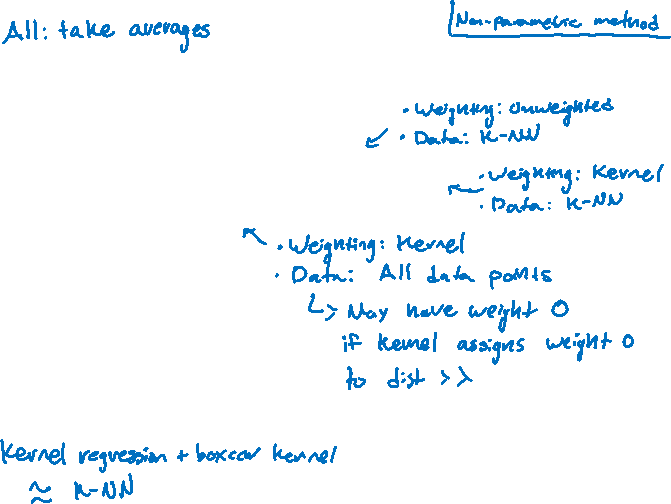 All: take averages
Non-parametric method
• Weighting: Unweighted
• Data: K-NN
• Weighting: Kernel
• Data: K-NN
• Weighting: Kernel
• Data: All data points
↳ May have weight 0
if kernel assigns weight 0
to dist > λ
Kernel regression + boxcar kernel
≈ K-NN